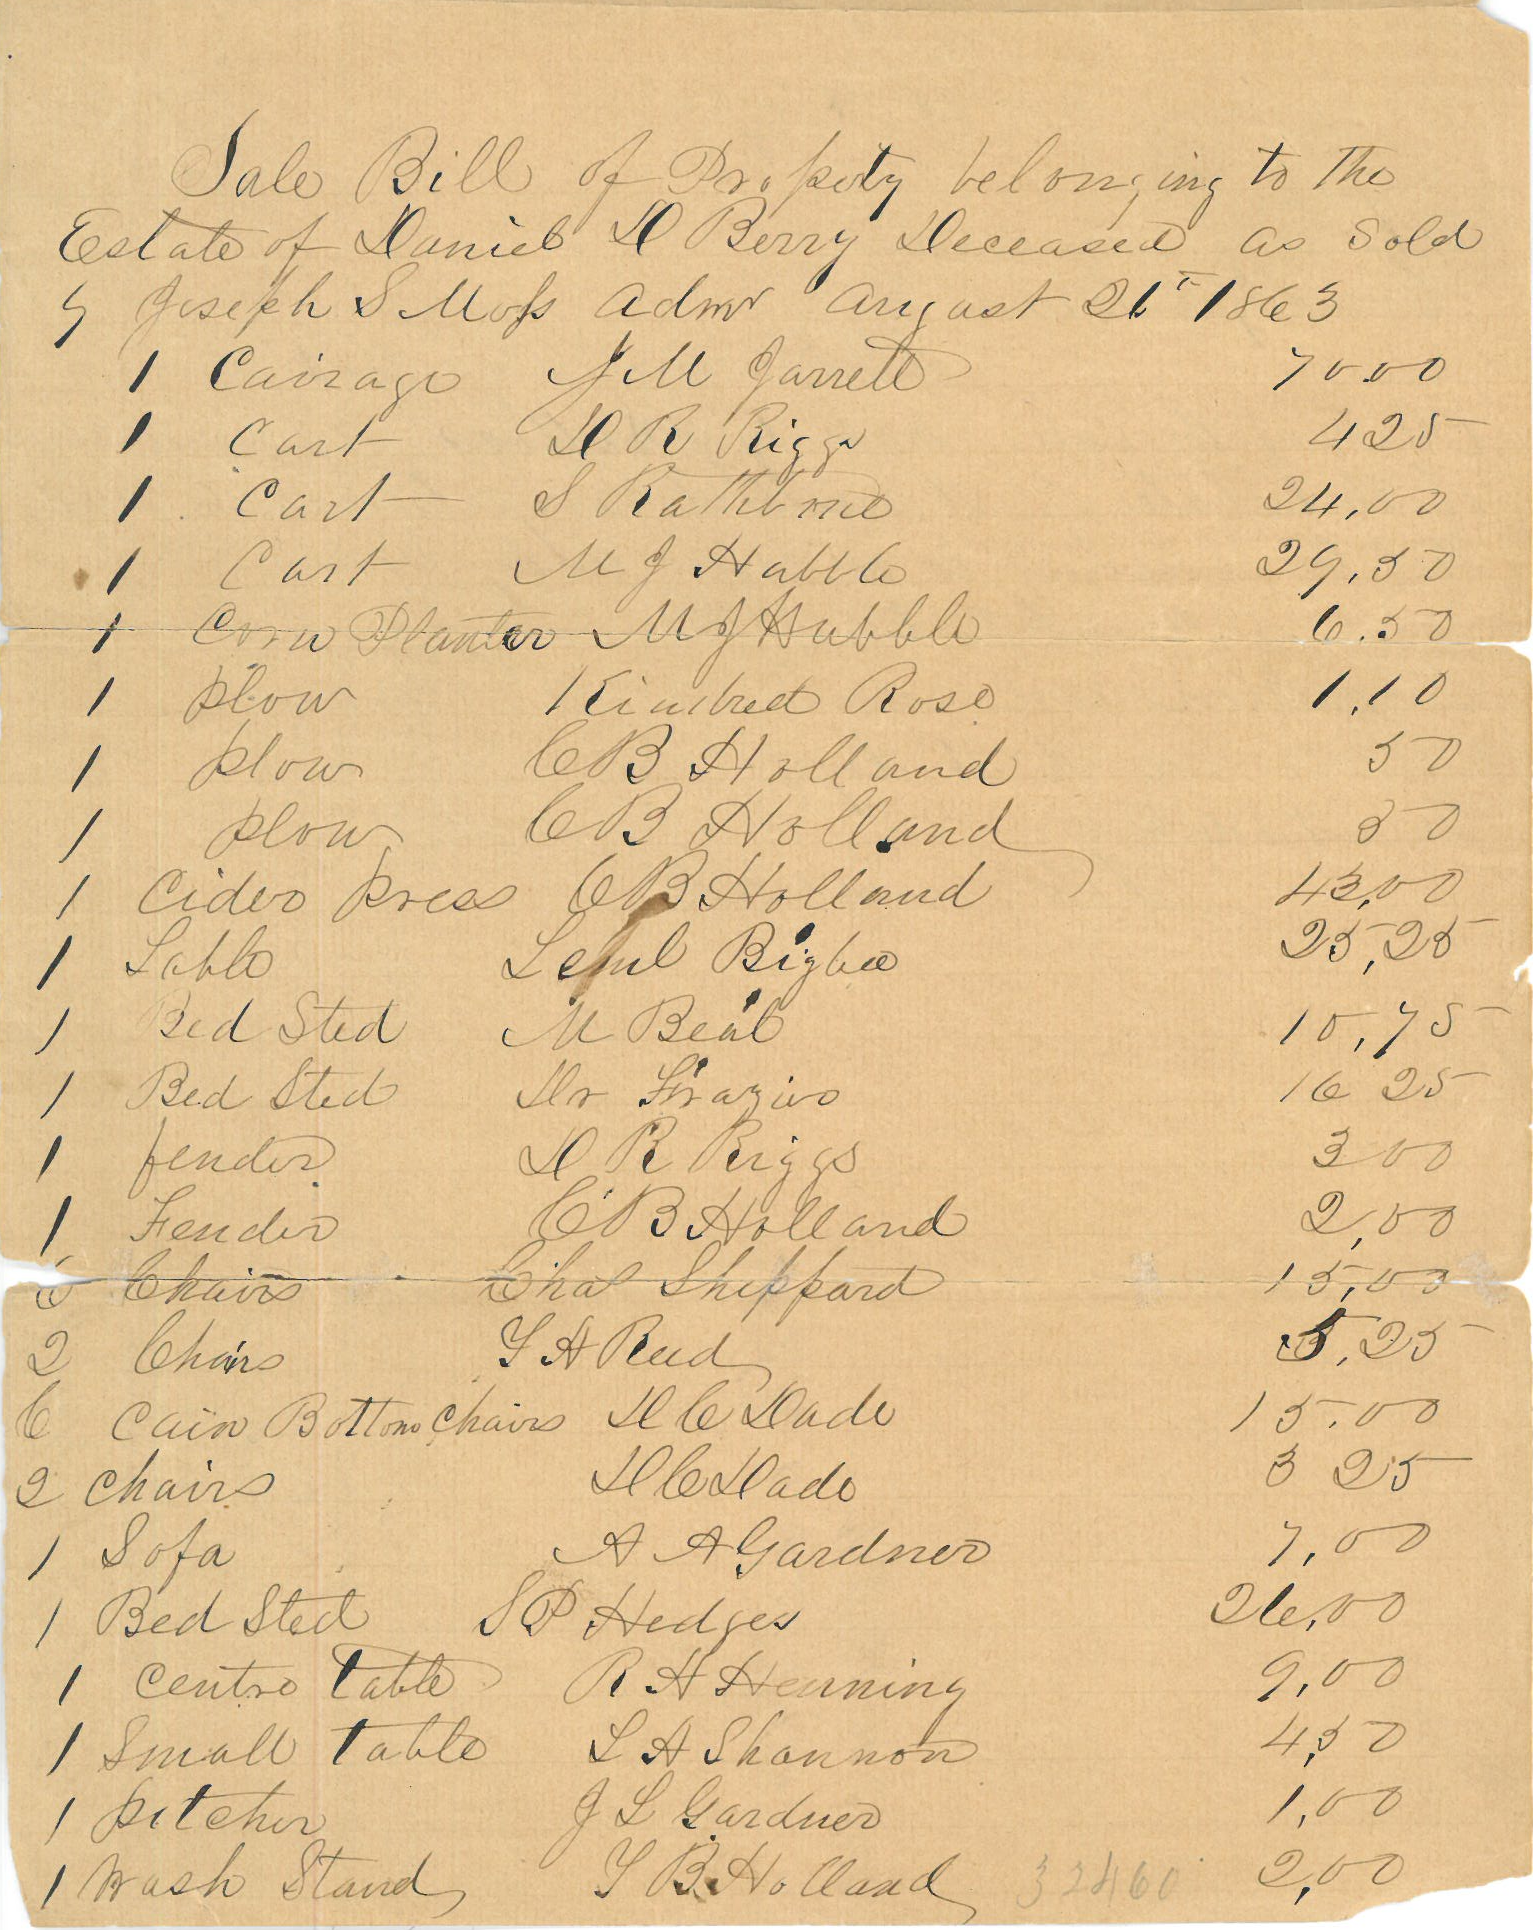 Sale Bill of Propity belonging to the
Estate of Daniel D Berry Deceased as Sold
by Joseph S Moss Admr August 21st 1863
1 Cairage J M Jarrett 70.00
1 Cart D R Riggs 4 25
1 Cart S Rathbone 24,00
1 Cart M J Hubble 29,50
1 Corn Planter M J Hubble 6.50
1 plow Kindred Rose 1,10
1 plow C B Holland 50
1 plow C B Holland 50
1 Cider press C B Holland 43,00
1 Table Leml Bigbee 25,25
1 Bed Sted M Beal 10,75
1 Bed Sted Dr Frazier 16 25
1 fender D R Riggs 3 00
1 Fender C B Holland 2,00
6 Chairs Chas Sheppard 15,00
2 Chairs T A Reed 5,25
6 Cain Bottom Chairs D C Dade 15.00
2 chairs D C Dade 3 25
1 Sofa A A Gardner 7,00
1 Bed Sted S P Hedges 26,00
1 Centre table R A Henning 9,00
1 Small table L A Shannon 4,50
1 pitcher J L Gardner 1,00
1 Wash Stand T B Holland 32460 2,00